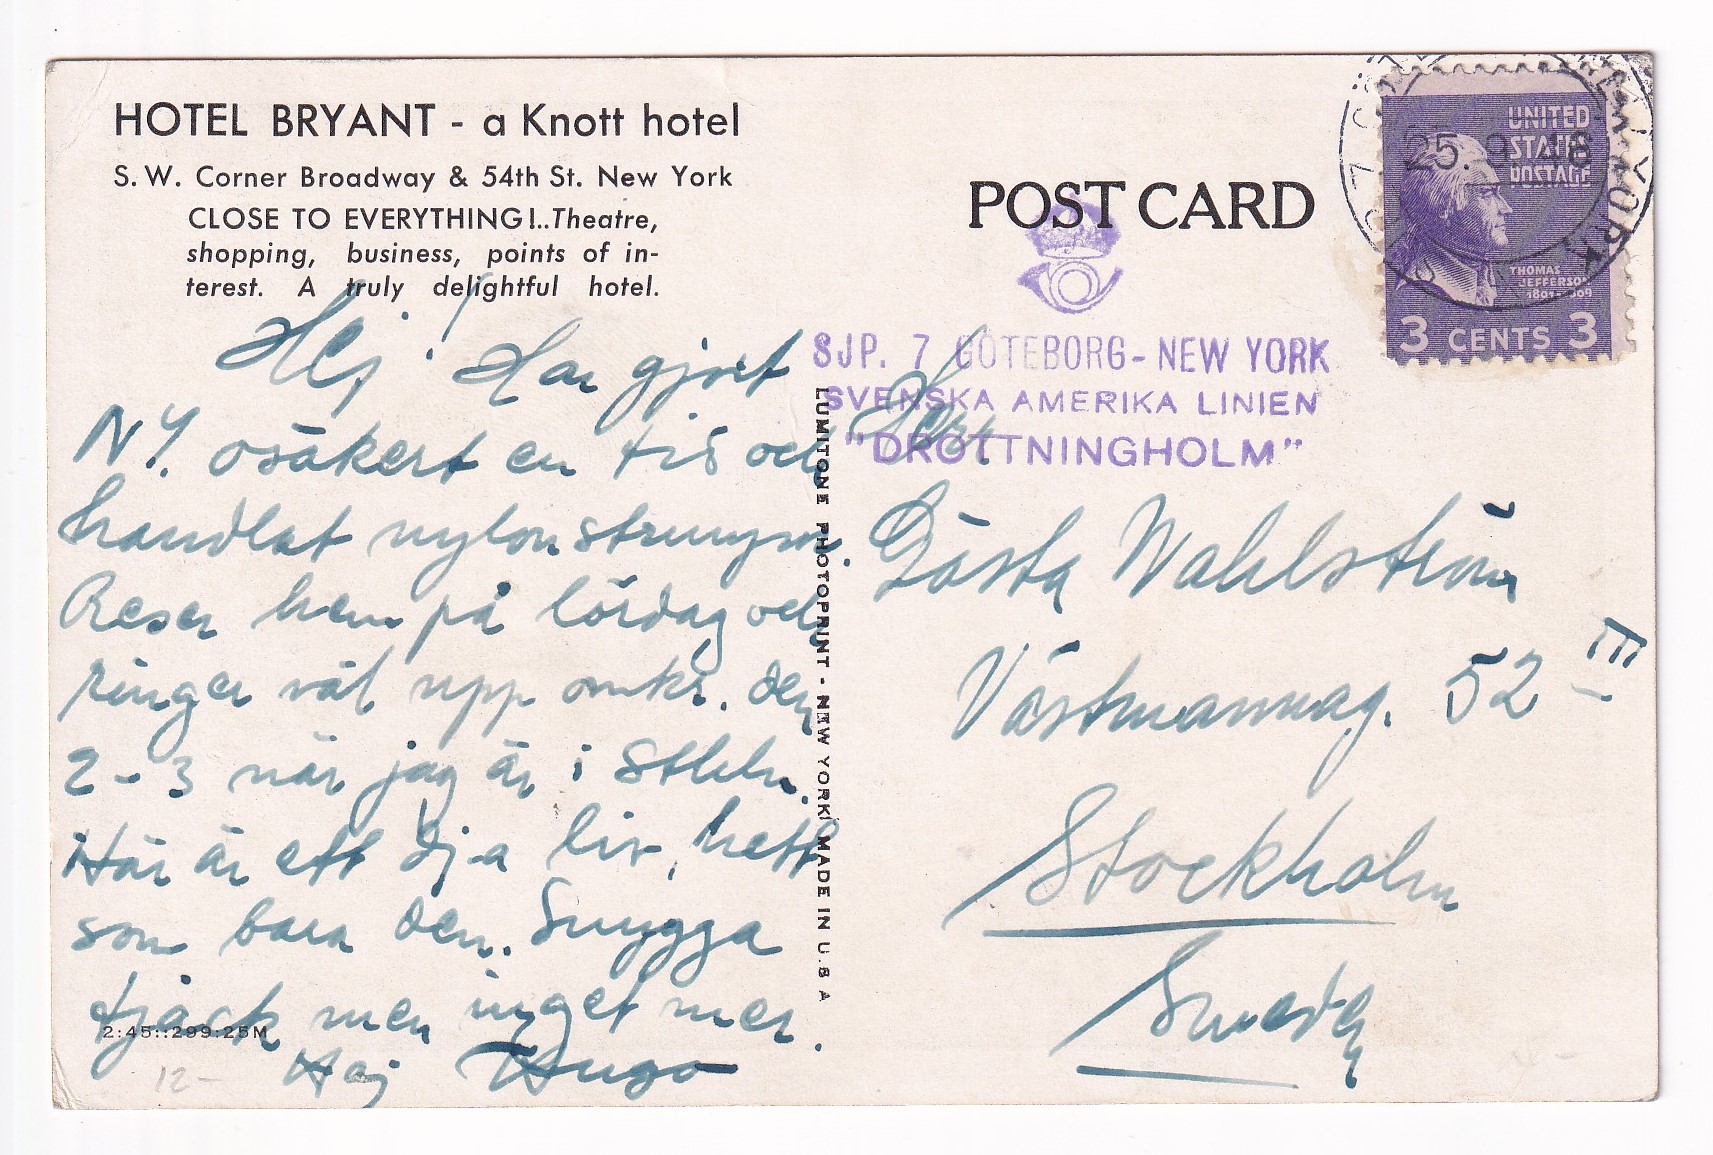 HOTEL BRYANT - a Knott hotel
S. W. Corner Broadway & 54th St. New York
CLOSE TO EVERYTHING!..Theatre,
shopping, business, points of in-
terest. A truly delightful hotel.
Hej! Har gjort
N.Y. osäkert en tis och
handlat nylonstrumpor.
Reser hem på lördag och
ringer väl upp omkr. den
2-3 när jag är i Sthlm.
Här är ett dj-a liv, hett
som bara den. Snygga
tjack men inget mer.
Haj Hugo
2:45::299:25M
12-
LUMITONE PHOTOPRINT - NEW YORK MADE IN U.S A
POST CARD
SJP. 7 GÖTEBORG - NEW YORK
SVENSKA AMERIKA LINIEN
"DROTTNINGHOLM"
25. 9. 48
YORK
UNITED
STATES
POSTAGE
THOMAS
JEFFERSON
1801-1809
3 CENTS 3
Herr
Gösta Wahlström
Västmannag. 52 III
Stockholm
Sweden